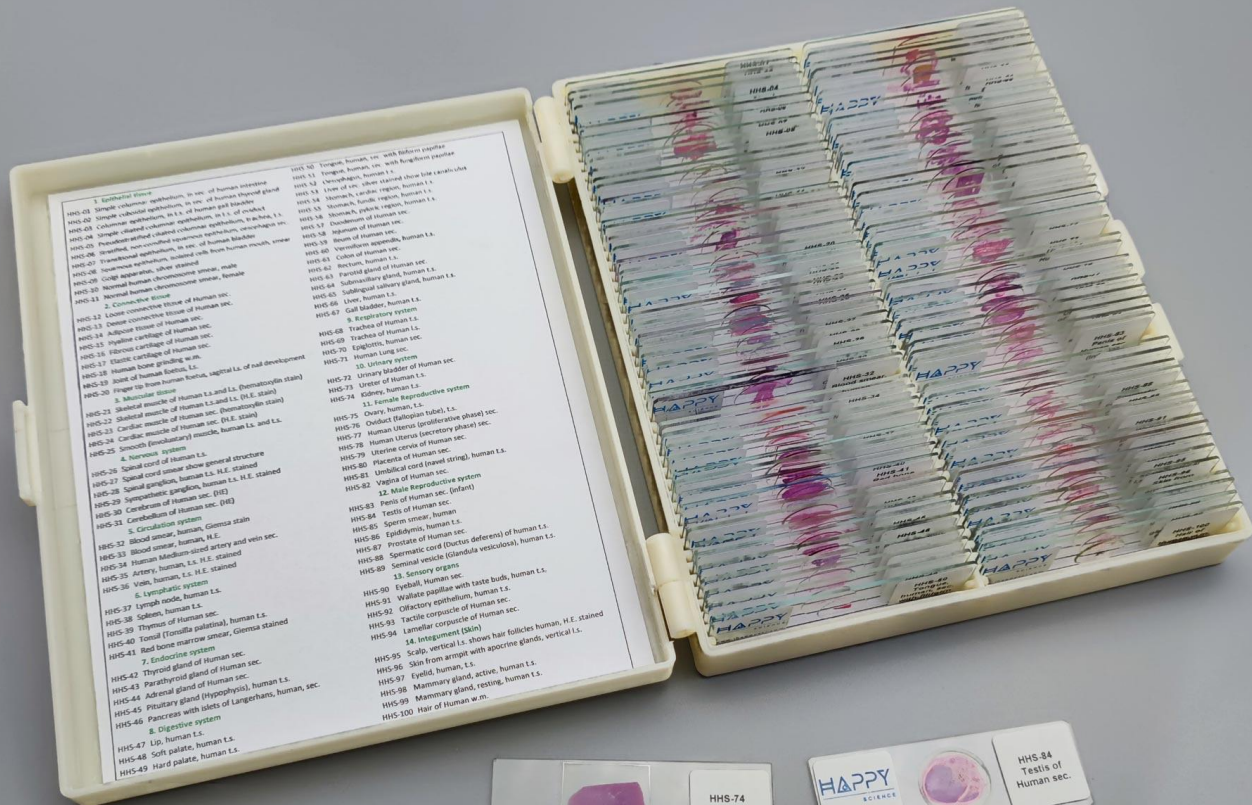 1. Epithelial tissue
HHS-01 Simple columnar epithelium, in sec. of human intestine
HHS-02 Simple cuboidal epithelium, in sec. of human thyroid gland
HHS-03 Columnar epithelium, in t.s. of human gall bladder
HHS-04 Simple ciliated columnar epithelium, in t.s. of oviduct
HHS-05 Pseudostratified ciliated columnar epithelium, trachea, t.s.
HHS-06 Stratified, non-cornified squamous epithelium, oesophagus sec.
HHS-07 Transitional epithelium, in sec. of human bladder
HHS-08 Squamous epithelium, isolated cells from human mouth, smear
HHS-09 Golgi apparatus, silver stained
HHS-10 Normal human chromosome smear, male
HHS-11 Normal human chromosome smear, female
2. Connective tissue
HHS-12 Loose connective tissue of Human sec.
HHS-13 Dense connective tissue of Human sec.
HHS-14 Adipose tissue of Human sec.
HHS-15 Hyaline cartilage of Human sec.
HHS-16 Fibrous cartilage of Human sec.
HHS-17 Elastic cartilage of Human sec.
HHS-18 Human bone grinding w.m.
HHS-19 Joint of human foetus, l.s.
HHS-20 Finger tip from human foetus, sagittal l.s. of nail development
3. Muscular tissue
HHS-21 Skeletal muscle of Human t.s.and l.s. (hematoxylin stain)
HHS-22 Skeletal muscle of Human t.s.and l.s. (H.E. stain)
HHS-23 Cardiac muscle of Human sec. (hematoxylin stain)
HHS-24 Cardiac muscle of Human sec. (H.E. stain)
HHS-25 Smooth (involuntary) muscle, human l.s. and t.s.
4. Nervous system
HHS-26 Spinal cord of Human t.s.
HHS-27 Spinal cord smear show general structure
HHS-28 Spinal ganglion, human t.s. H.E. stained
HHS-29 Sympathetic ganglion, human t.s. H.E. stained
HHS-30 Cerebrum of Human sec. (HE)
HHS-31 Cerebellum of Human sec. (HE)
5. Circulation system
HHS-32 Blood smear, human, Giemsa stain
HHS-33 Blood smear, human, H.E.
HHS-34 Human Medium-sized artery and vein sec.
HHS-35 Artery, human, t.s. H.E. stained
HHS-36 Vein, human, t.s. H.E. stained
6. Lymphatic system
HHS-37 Lymph node, human, t.s.
HHS-38 Spleen, human t.s.
HHS-39 Thymus of Human sec.
HHS-40 Tonsil (Tonsilla palatina), human t.s.
HHS-41 Red bone marrow smear, Giemsa stained
7. Endocrine system
HHS-42 Thyroid gland of Human sec.
HHS-43 Parathyroid gland of Human sec.
HHS-44 Adrenal gland of Human sec.
HHS-45 Pituitary gland (Hypophysis), human t.s.
HHS-46 Pancreas with islets of Langerhans, human, sec.
8. Digestive system
HHS-47 Lip, human t.s.
HHS-48 Soft palate, human t.s.
HHS-49 Hard palate, human t.s.
HHS-50 Tongue, human, sec. with filiform papillae
HHS-51 Tongue, human, sec. with fungiform papillae
HHS-52 Oesophagus, human t.s.
HHS-53 Liver of sec. silver stained show bile canaliculus
HHS-54 Stomach, cardiac region, human t.s.
HHS-55 Stomach, fundic region, human t.s.
HHS-56 Stomach, pyloric region, human t.s.
HHS-57 Duodenum of Human sec.
HHS-58 Jejunum of Human sec.
HHS-59 Ileum of Human sec.
HHS-60 Vermiform appendix, human t.s.
HHS-61 Colon of Human sec.
HHS-62 Rectum, human t.s.
HHS-63 Parotid gland of Human sec.
HHS-64 Submaxillary gland, human t.s.
HHS-65 Sublingual salivary gland, human t.s.
HHS-66 Liver, human t.s.
HHS-67 Gall bladder, human t.s.
9. Respiratory system
HHS-68 Trachea of Human t.s.
HHS-69 Trachea of Human l.s.
HHS-70 Epiglottis, human sec.
HHS-71 Human Lung sec.
10. Urinary system
HHS-72 Urinary bladder of Human sec.
HHS-73 Ureter of Human t.s.
HHS-74 Kidney, human t.s.
11. Female Reproductive system
HHS-75 Ovary, human, t.s.
HHS-76 Oviduct (fallopian tube), t.s.
HHS-77 Human Uterus (proliferative phase) sec.
HHS-78 Human Uterus (secretory phase) sec.
HHS-79 Uterine cervix of Human sec.
HHS-80 Placenta of Human sec.
HHS-81 Umbilical cord (navel string), human t.s.
HHS-82 Vagina of Human sec.
12. Male Reproductive system
HHS-83 Penis of Human sec. (infant)
HHS-84 Testis of Human sec.
HHS-85 Sperm smear, human
HHS-86 Epididymis, human t.s.
HHS-87 Prostate of Human sec.
HHS-88 Spermatic cord (Ductus deferens) of human t.s.
HHS-89 Seminal vesicle (Glandula vesiculosa), human t.s.
13. Sensory organs
HHS-90 Eyeball, Human sec.
HHS-91 Wallate papillae with taste buds, human t.s.
HHS-92 Olfactory epithelium, human t.s.
HHS-93 Tactile corpuscle of Human sec.
HHS-94 Lamellar corpuscle of Human sec.
14. Integument (Skin)
HHS-95 Scalp, vertical l.s. shows hair follicles human, H.E. stained
HHS-96 Skin from armpit with apocrine glands, vertical l.s.
HHS-97 Eyelid, human, t.s.
HHS-98 Mammary gland, active, human t.s.
HHS-99 Mammary gland, resting, human t.s.
HHS-100 Hair of Human w.m.
HHS-04
HAPPY
HAPPY
HHS-32
Blood smear,
HHS-34
HAPPY
HHS-41
HHS-83
Penis of
HHS-100
HHS-50
Tongue,
HAPPY
SCIENCE
HAPPY
SCIENCE
HHS-74
HAPPY
SCIENCE
HHS-84
Testis of
Human sec.